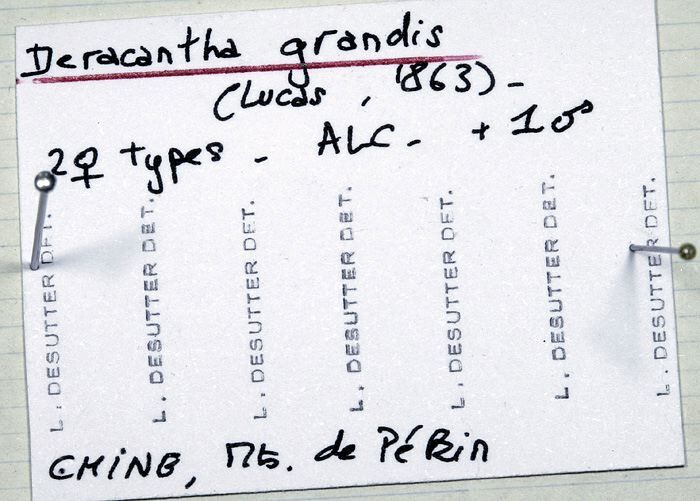 Deracantha grandis
(Lucas, 1863)-
2♀ types - ALC- + 1♂
L. DESUTTER DET.
L. DESUTTER DET.
L. DESUTTER DET.
L. DESUTTER DET.
L. DESUTTER DET.
L. DESUTTER DET.
L. DESUTTER DET.
CHINE, Mts. de PéKin